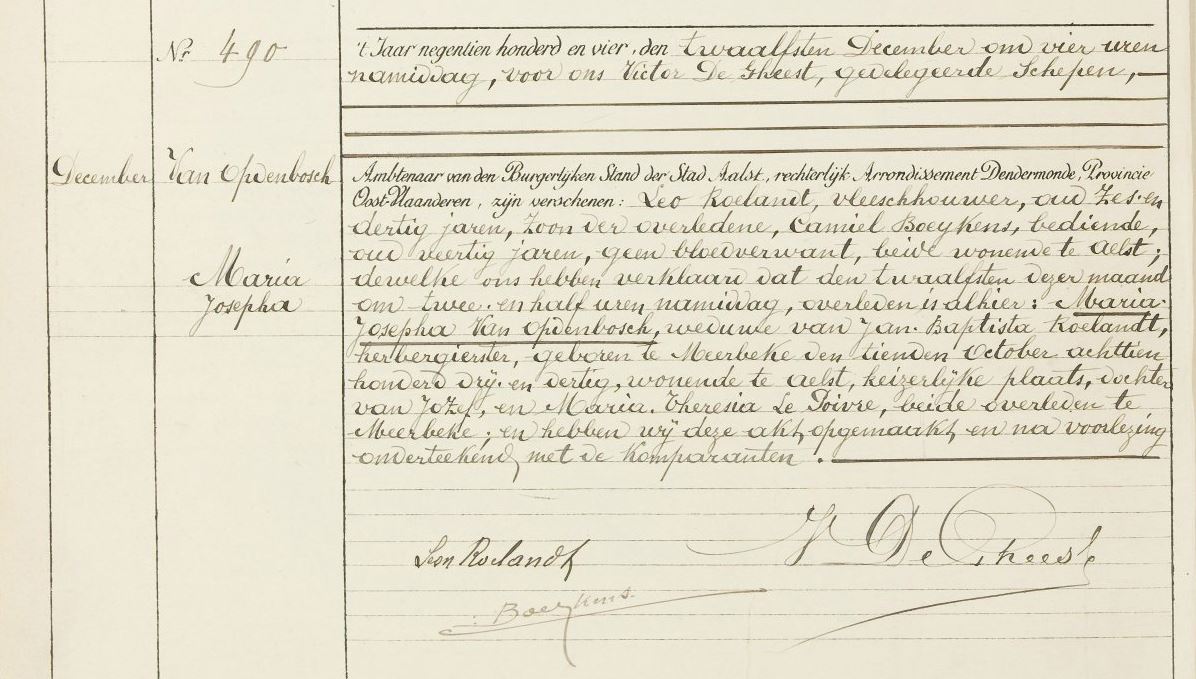 Nr. 490
't Jaar negentien honderd en vier, den twaalfsten December om vier uren
namiddag, voor ons Victor De Gheest, gedelegeerde Schepen,
December
Van Opdenbosch
Maria
Josepha
Ambtenaar van den Burgerlyken Stand der Stad Aalst, rechterlijk Arrondissement Dendermonde, Provincie
Oost-Vlaanderen, zijn verschenen: Leo Roelandt, vleeschhouwer, oud zes-en
dertig jaren, zoon der overledene, Camiel Boeykens, bediende,
oud veertig jaren, geen bloedverwant, beide wonende te Aelst;
dewelke ons hebben verklaard dat den twaalfsten dezer maand
om twee-en half uren namiddag, overleden is alhier: Maria-
Josepha Van Opdenbosch, weduwe van Jan-Baptista Roelandt,
herbergierster, geboren te Meerbeke den tienden October achttien
honderd dry-en dertig, wonende te Aelst, keizerlyke plaats, dochter
van Jozef, en Maria-Theresia Le Poivre, beide overleden te
Meerbeke; en hebben wij deze akt opgemaakt, en na voorlezing
onderteekend, met de komparanten.
Leon Roelandt
V De Gheest
Boeykens.